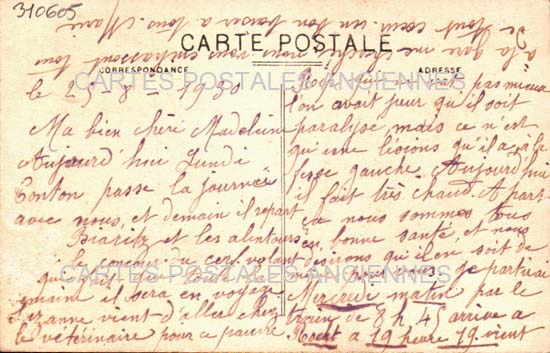 310605
CARTE POSTALE
CORRESPONDANCE
ADRESSE
CARTES POSTALES ANCIENNES
CARTES POSTALES ANCIENNES
le 25 - 8 - 1930
Ma bien chéri Madelein
Aujourd'hui Lundi
Tonton passe la journée
avec nous, et demain il repart
Biaritz et les alentours
le concour du cerf volant
qui fait que toute la
semaine il sera en voyage
Suzanne vient d'allée chez
le vétérinaire pour ce pauvre
pas mieux
l'on avait peur qu'il soit
paralysé, mais ce n'est
qu'une lésions qu'il a à la
fesse gauche. Aujourd'hui
il fait très chaud. A part
ça nous sommes tous
en bonne santé, et nous
désirons qu'il en soit de
même pour vous, je partirai
Mercredi matin par le
train de 8 h 45 arrive a
a 19 heure 19. vient
à la gare me cherche, nous vous embrassont tous
de tout coeur. un bon baiser a tous. Marie